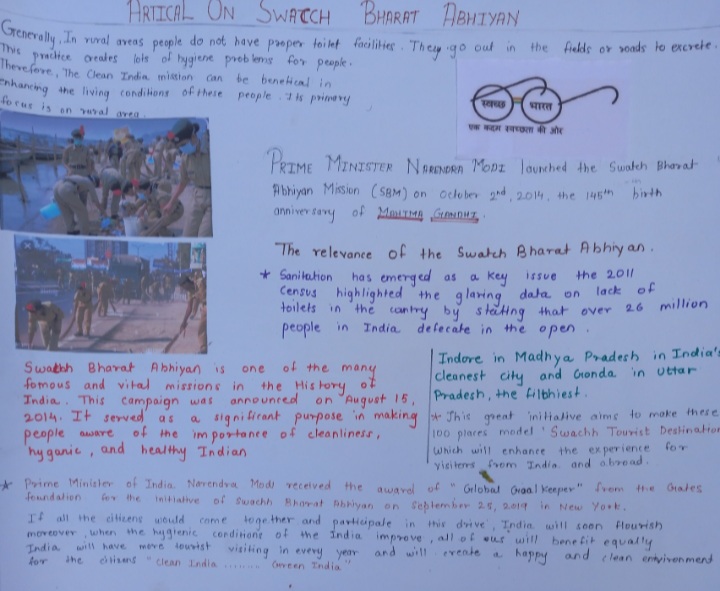 ARTICAL ON SWATCH BHARAT ABHIYAN
Generally, In rural areas people do not have proper toilet facilities. They go out in the fields or roads to excrete.
This practice creates lots of hygiene problems for people.
Therefore, The Clean India mission can be benefical in
enhancing the living conditions of these people. Its primary
focus is on rural area.
स्वच्छ भारत
एक कदम स्वच्छता की ओर
PRIME MINISTER NARENDRA MODI launched the Swatch Bharat
Abhiyan Mission (SBM) on October 2nd, 2014, the 145th birth
anniversary of MAHTMA GANDHI.
The relevance of the Swatch Bharat Abhiyan.
* Sanitation has emerged as a key issue the 2011
Census highlighted the glaring data on lack of
toilets in the country by stating that over 26 million
people in India defecate in the open.
Swachh Bharat Abhiyan is one of the many
famous and vital missions in the History of
India. This campaign was announced on August 15,
2014. It served as a significant purpose in making
people aware of the importance of cleanliness,
hyganic, and healthy Indian
Indore in Madhya Pradesh in India's
cleanest city and Gonda in Uttar
Pradesh, the filthiest.
* This great initiative aims to make these
100 places model 'Swachh Tourist Destination
which will enhance the experience for
visiters from India and abroad.
* Prime Minister of India Narendra Modi received the award of "Global Goal Keeper" from the Gates
foundation for the initiative of Swachh Bharat Abhiyan on September 25, 2019 in New York.
If all the citizens would come together and participate in this drive, India will soon flourish
moreover, when the hygienic conditions of the India improve, all of us will benefit equally
India will have more tourist visiting in every year and will create a happy and clean environment
for the citizens "Clean India ........ Green India"